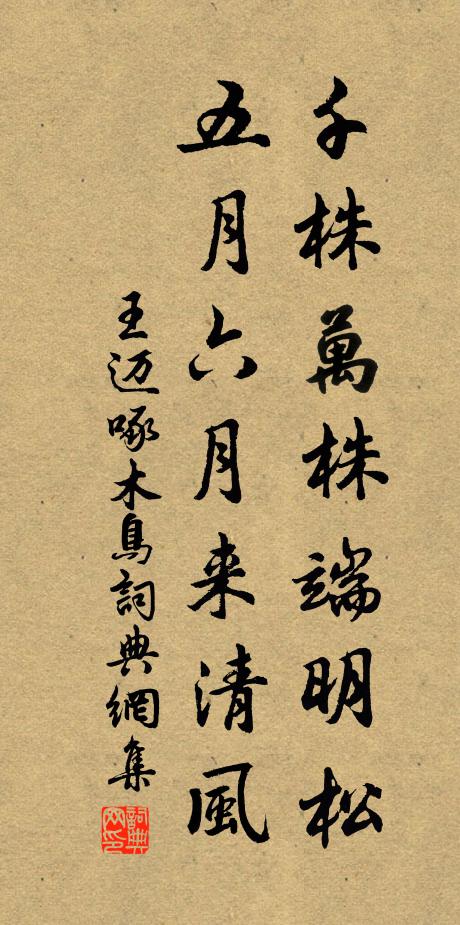 千株萬株端明松
五月六月来清風
王迈啄木鳥詞典網集